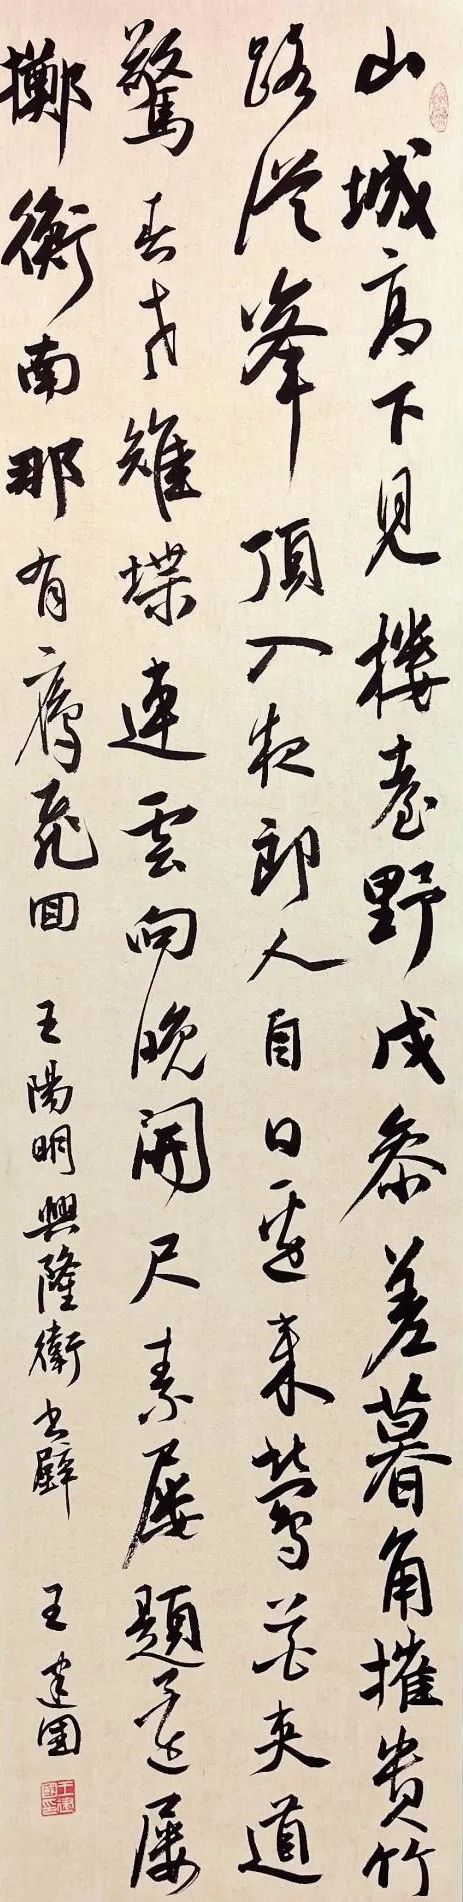 山城高下見樓臺野戍参差暮角摧貴竹
路從峯頂入夜郎人自日邊来鶯花夾道
驚春老雉堞連雲向晚開尺素屢題還屢
擲衡南那有鴈飛回 王陽明興隆衛書壁 王建國
王建國印